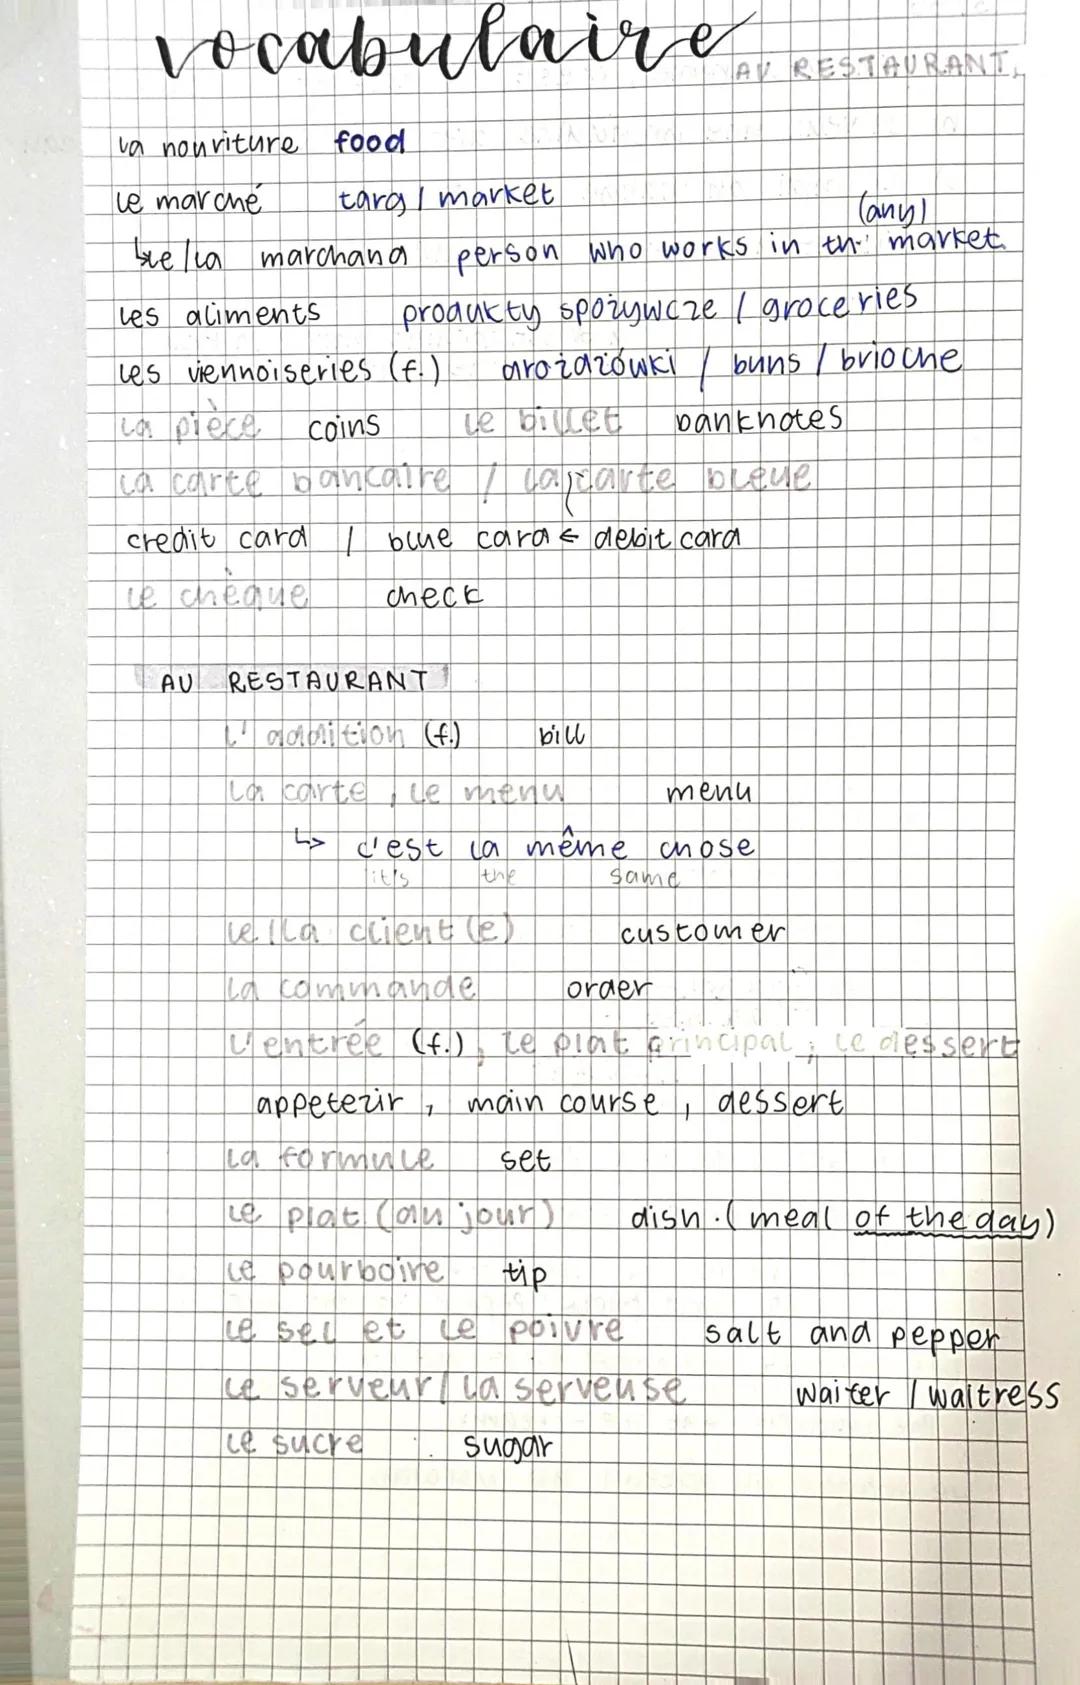 vocabulaire
AU RESTAURANT
la nouriture food
le marché targ / market
(any)
le/la marchand person who works in the market
les aliments produkty spożywcze / groceries
les viennoiseries (f.) drożdżówki / buns / brioche
la pièce coins le billet banknotes
la carte bancaire / la carte bleue
credit card / blue card ← debit card
le chèque check
AU RESTAURANT
l'addition (f.) bill
la carte, le menu menu
↳ c'est la même chose
it's the same
le/la client(e) customer
la commande order
l'entrée (f.), le plat principal, le dessert
appetezir, main course, dessert
la formule set
le plat (du jour) dish. (meal of the day)
le pourboire tip
le sel et le poivre salt and pepper
le serveur/la serveuse waiter / waitress
le sucre sugar